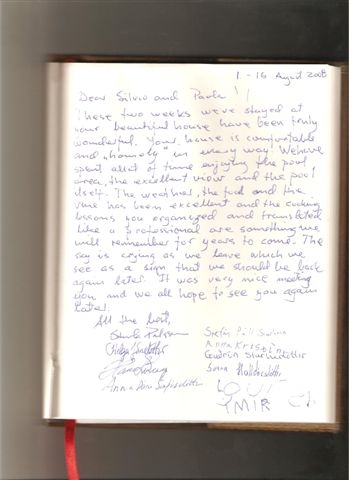 1. - 16 August 2008
Dear Silvio and Paula !!
These two weeks we've stayed at
your beautiful house have been truly
wonderful. Your house is comfortable
and "homely" in every way! We have
spent allot of time enjoying the pool
area, the excellent view and the pool
itself. The weather, the food and the
vine has been excellent and the cooking
lessons you organized and translated
like a professional are something we
will remember for years to come. The
sky is crying as we leave which we
see as a sign that we should be back
again later. It was very nice meeting
you and we all hope to see you again
later.
All the best,
Stefán Páll
Anna Kristín
Guðrún
Anna Dóra
YMIR